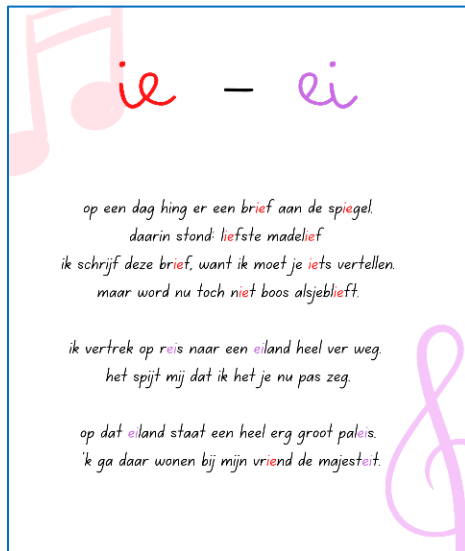 ie - ei
op een dag hing er een brief aan de spiegel.
daarin stond: liefste madelief
ik schrijf deze brief, want ik moet je iets vertellen.
maar word nu toch niet boos alsjeblieft.
ik vertrek op reis naar een eiland heel ver weg.
het spijt mij dat ik het je nu pas zeg.
op dat eiland staat een heel erg groot paleis.
'k ga daar wonen bij mijn vriend de majesteit.